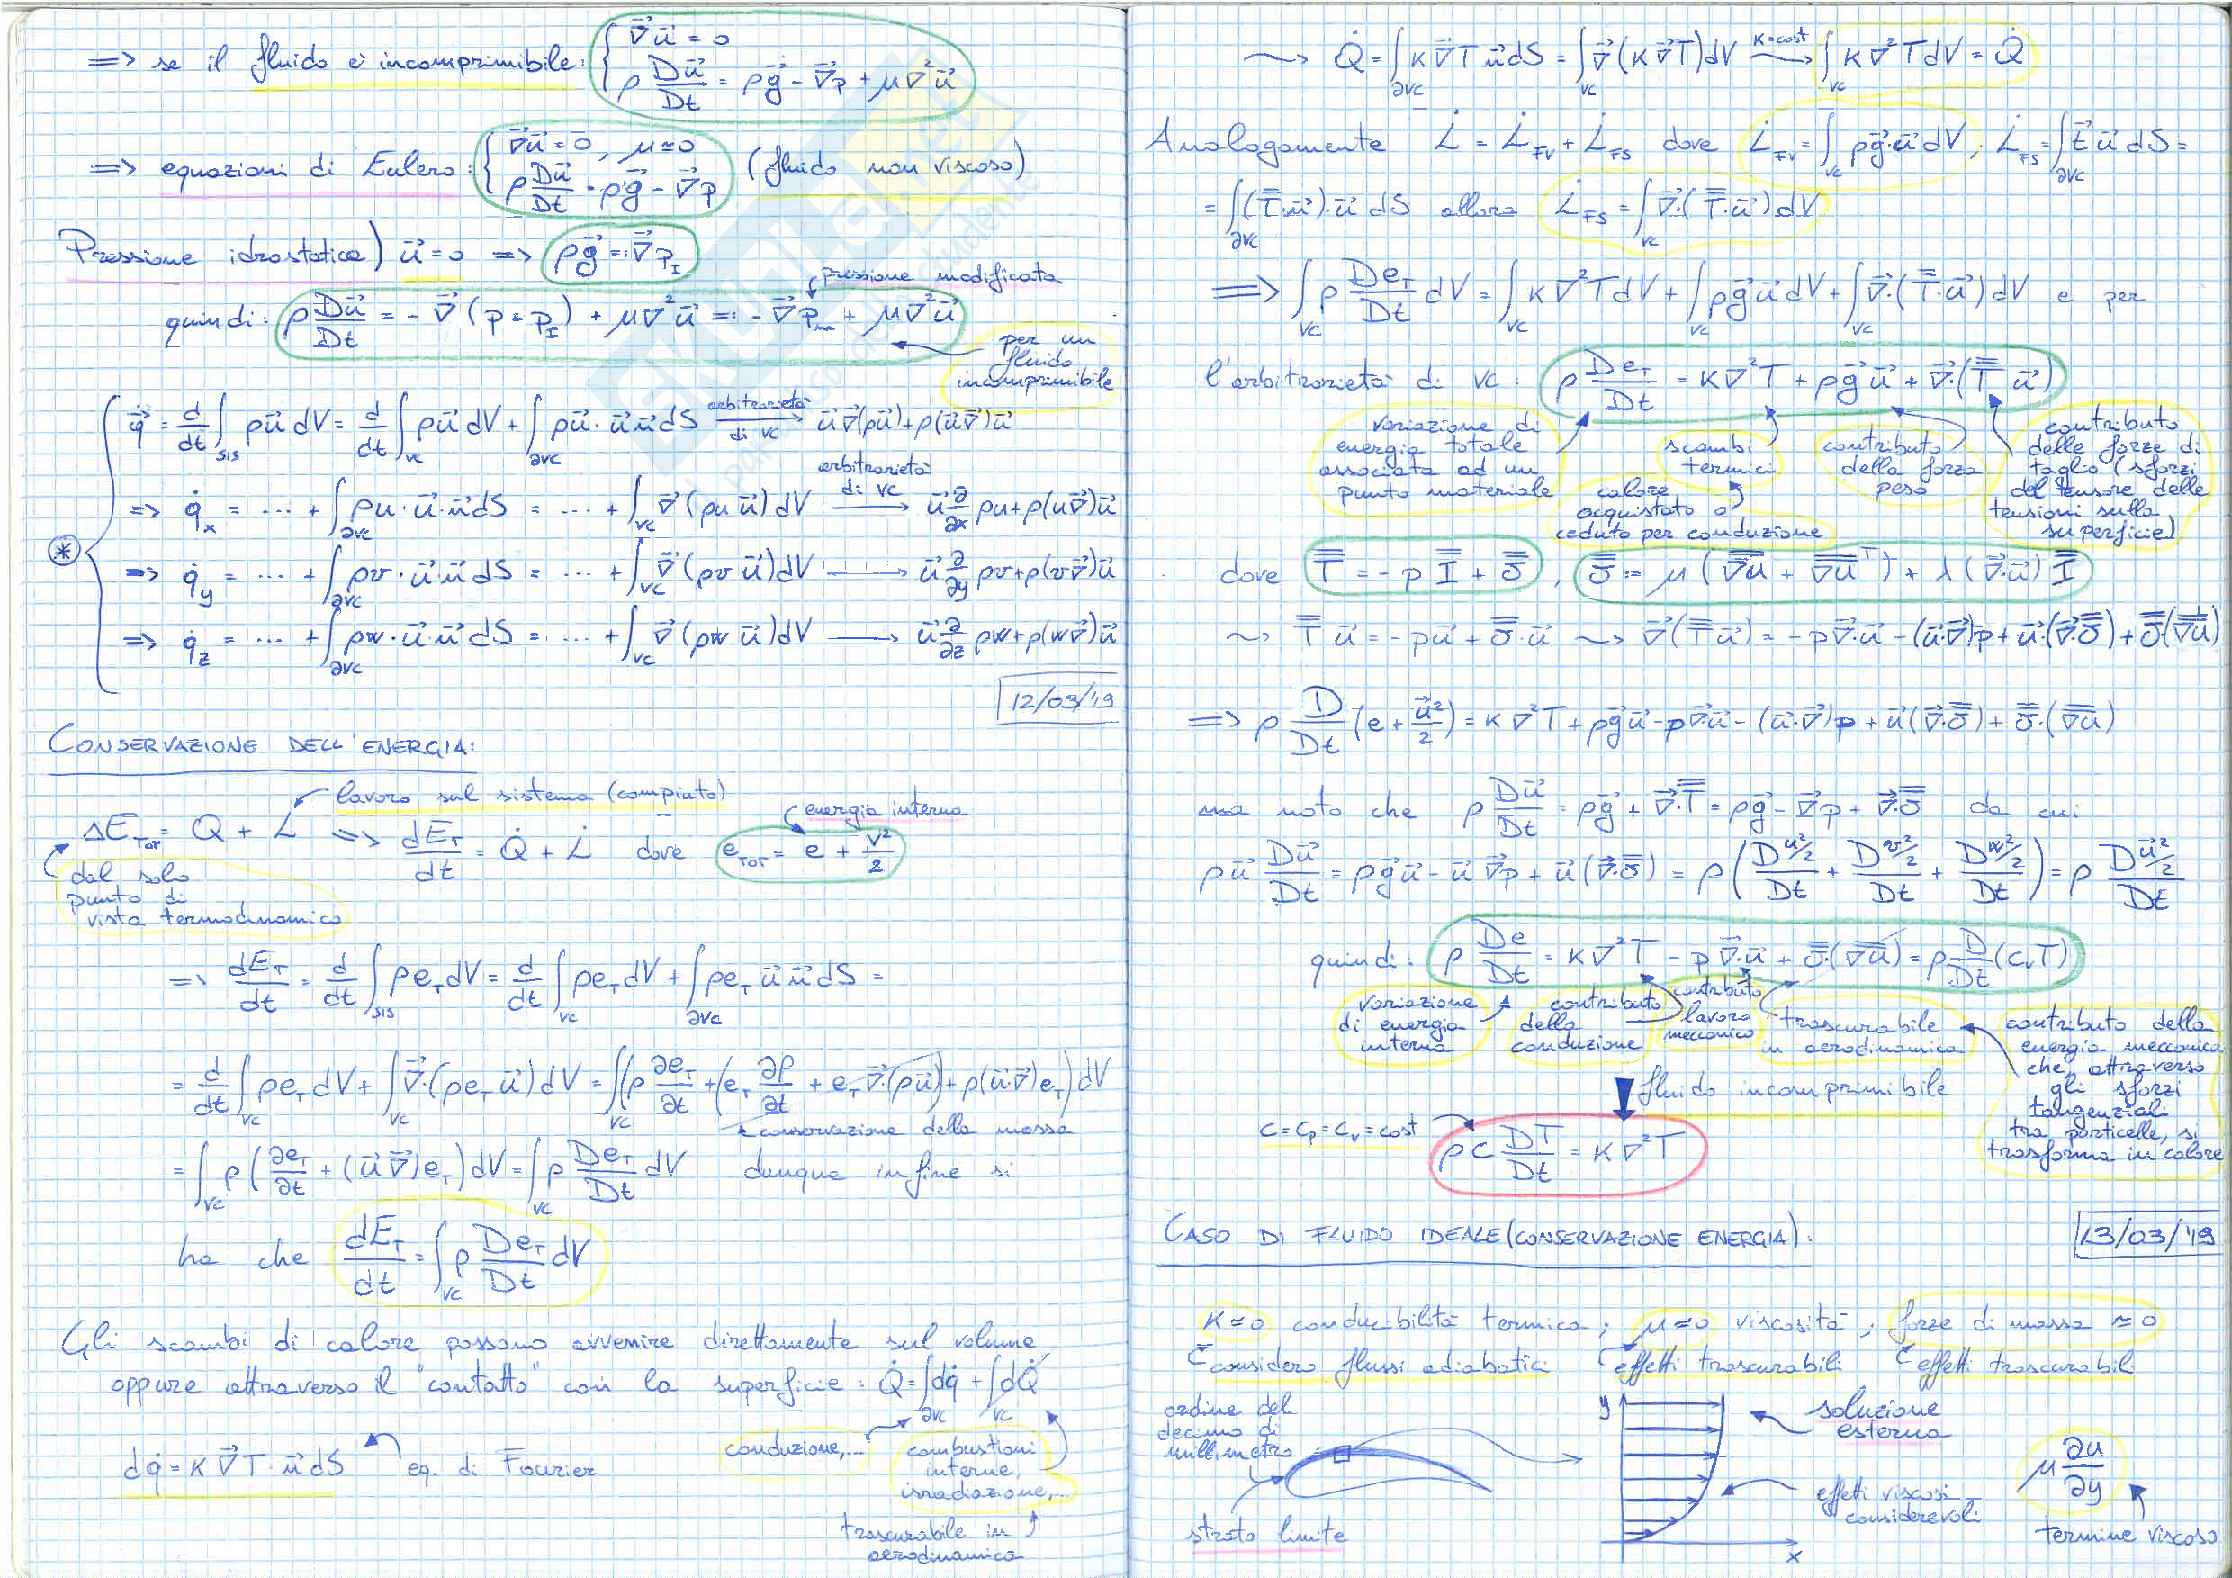 ⇒ se il fluido è incomprimibile: { ∇⃗u⃗ = 0
ρ Du⃗/Dt = ρg⃗ - ∇⃗p + μ∇²u⃗
⇒ equazioni di Eulero: { ∇⃗u⃗ = 0, μ≈0 (fluido non viscoso)
ρ Du⃗/Dt = ρg⃗ - ∇⃗p
Pressione idrostatica) u⃗=0 ⇒ ρg⃗ =: ∇⃗p_I
pressione modificata
quindi: ρ Du⃗/Dt = -∇⃗(p - p_I) + μ∇²u⃗ =: -∇⃗p_m + μ∇²u⃗
per un
fluido
incomprimibile
q⃗̇ = d/dt ∫_sis ρu⃗ dV = d/dt ∫_vc ρu⃗ dV + ∫_∂vc ρu⃗·u⃗ n⃗ dS → (arbitrarietà di vc) u⃗∇⃗(ρu⃗)+ρ(u⃗∇⃗)u⃗
arbitrarietà
di vc
⇒ q̇_x = ... + ∫_∂vc ρu·u⃗·n⃗ dS = ... + ∫_vc ∇⃗(ρu u⃗) dV → u⃗ ∂/∂x ρu+ρ(u∇⃗)u⃗
⊛
⇒ q̇_y = ... + ∫_∂vc ρv·u⃗·n⃗ dS = ... + ∫_vc ∇⃗(ρv u⃗) dV → u⃗ ∂/∂y ρv+ρ(v∇⃗)u⃗
⇒ q̇_z = ... + ∫_∂vc ρw·u⃗·n⃗ dS = ... + ∫_vc ∇⃗(ρw u⃗) dV → u⃗ ∂/∂z ρw+ρ(w∇⃗)u⃗
12/03/'19
CONSERVAZIONE DELL'ENERGIA:
lavoro sul sistema (compiuto)
energia interna
ΔE_TOT = Q + L ⇒ dE_T/dt = Q̇ + L̇ dove e_TOT = e + V²/2
dal solo
punto di
vista termodinamico
⇒ dE_T/dt = d/dt ∫_sis ρe_T dV = d/dt ∫_vc ρe_T dV + ∫_∂vc ρe_T u⃗ n⃗ dS =
= d/dt ∫_vc ρe_T dV + ∫_vc ∇⃗·(ρe_T u⃗) dV = ∫_vc (ρ ∂e_T/∂t + (e_T ∂ρ/∂t + e_T ∇⃗·(ρu⃗)) + ρ(u⃗·∇⃗)e_T) dV
conservazione della massa
= ∫_vc ρ(∂e_T/∂t + (u⃗ ∇⃗)e_T) dV = ∫_vc ρ De_T/Dt dV dunque infine si
ha che dE_T/dt = ∫_vc ρ De_T/Dt dV
Gli scambi di calore possono avvenire direttamente sul volume
oppure attraverso il "contatto" con la superficie: Q̇ = ∫_∂vc dq̇ + ∫_vc dQ̇
conduzione,...
combustioni
interne,
irradiazione,...
dq̇ = K ∇⃗T·n⃗ dS eq. di Fourier
trascurabile in
aerodinamica
⤳ Q̇ = ∫_∂vc K ∇⃗T n⃗ dS = ∫_vc ∇⃗(K ∇⃗T) dV → (K=cost) ∫_vc K ∇²T dV = Q̇
Analogamente L̇ = L̇_FV + L̇_FS dove L̇_FV = ∫_vc ρg⃗·u⃗ dV, L̇_FS = ∫_∂vc t⃗ u⃗ dS =
= ∫_∂vc (T̿·n⃗)·u⃗ dS allora L̇_FS = ∫_vc ∇⃗·(T̿·u⃗) dV
⇒ ∫_vc ρ De_T/Dt dV = ∫_vc K ∇²T dV + ∫_vc ρg⃗ u⃗ dV + ∫_vc ∇⃗·(T̿·u⃗) dV e per
l'arbitrarietà di vc: ρ De_T/Dt = K∇²T + ρg⃗ u⃗ + ∇⃗·(T̿ u⃗)
variazione di
energia totale
associata ad un
punto materiale
scambi
termici
calore
acquistato o
ceduto per conduzione
contributo
della forza
peso
contributo
delle forze di
taglio (sforzi
del tensore delle
tensioni sulla
superficie)
dove T̿ = -p I̿ + σ̿, σ̿ := μ(∇̿u + ∇̿u^T) + λ(∇⃗·u⃗) I̿
⤳ T̿ u⃗ = -pu⃗ + σ̿·u⃗ ⤳ ∇⃗(T̿ u⃗) = -p∇⃗·u⃗ - (u⃗·∇⃗)p + u⃗·(∇⃗·σ̿) + σ̿(∇̿u⃗)
⇒ ρ D/Dt (e + u⃗²/2) = K∇²T + ρg⃗u⃗ - p∇⃗u⃗ - (u⃗·∇⃗)p + u⃗(∇⃗·σ̿) + σ̿·(∇̿u)
ma noto che ρ Du⃗/Dt = ρg⃗ + ∇⃗·T̿ = ρg⃗ - ∇⃗p + ∇⃗·σ̿ da cui:
ρu⃗ Du⃗/Dt = ρg⃗u⃗ - u⃗ ∇⃗p + u⃗(∇⃗·σ̿) = ρ(D u²/2 /Dt + D v²/2 /Dt + D w²/2 /Dt) = ρ D u⃗²/2 /Dt
quindi: ρ De/Dt = K∇²T - p∇⃗·u⃗ + σ̿·(∇̿u) = ρ D/Dt (c_v T)
variazione
di energia
interna
contributo
della
conduzione
contributo
lavoro
meccanico
trascurabile
in aerodinamica
contributo della
energia meccanica
che, attraverso
gli sforzi
tangenziali
tra particelle, si
trasforma in calore
fluido incomprimibile
c = c_p = c_v = cost
ρ c DT/Dt = K∇²T
CASO DI FLUIDO IDEALE (CONSERVAZIONE ENERGIA):
13/03/'19
K≈0 conducibilità termica; μ≈0 viscosità; forze di massa ≈0
considero flussi adiabatici effetti trascurabili effetti trascurabili
ordine del
decimo di
millimetro
strato limite
y
x
soluzione
esterna
effeti viscosi
considerevoli
μ ∂u/∂y
termine viscoso